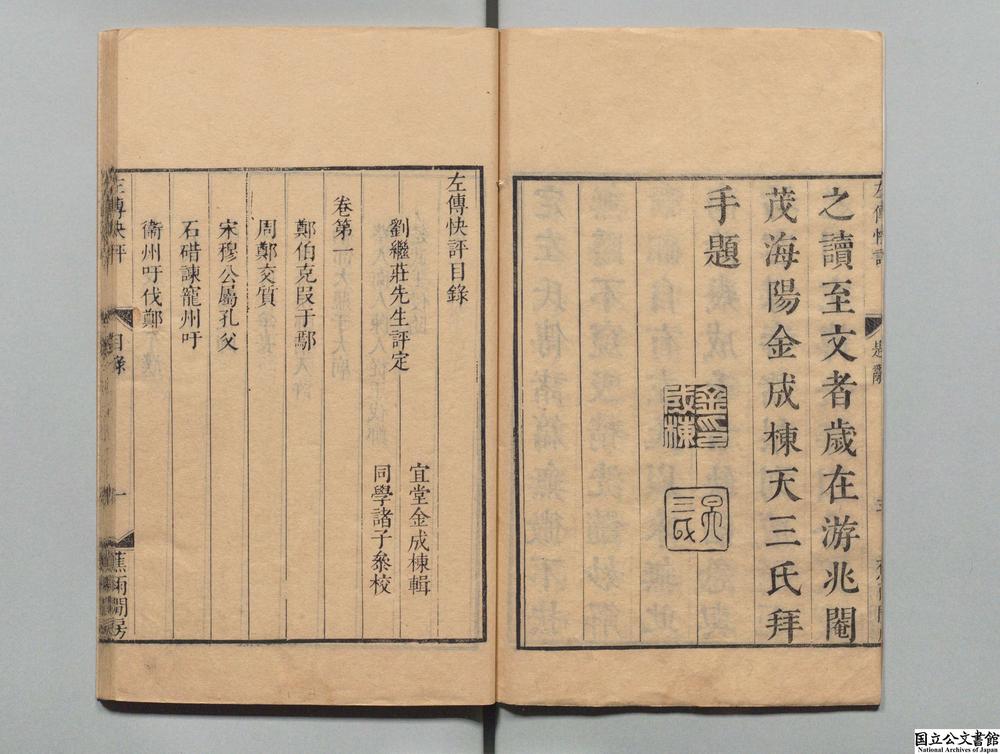 之讀至文者歲在游兆閹
茂海陽金成棟天三氏拜
手題
金印
成棟
天
三氏
左傳快評目錄
劉繼莊先生評定
宜堂金成棟輯
同學諸子叅校
卷第一
鄭伯克叚于鄢
周鄭交質
宋穆公屬孔父
石碏諫寵州吁
衞州吁伐鄭
左傳快評
目錄
一
蕉雨閒房
国立公文書館
National Archives of Japan